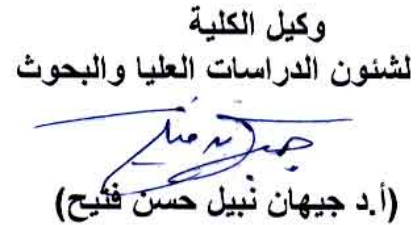 وكيل الكلية
لشئون الدراسات العليا والبحوث
(أ.د جيهان نبيل حسن فتيح)